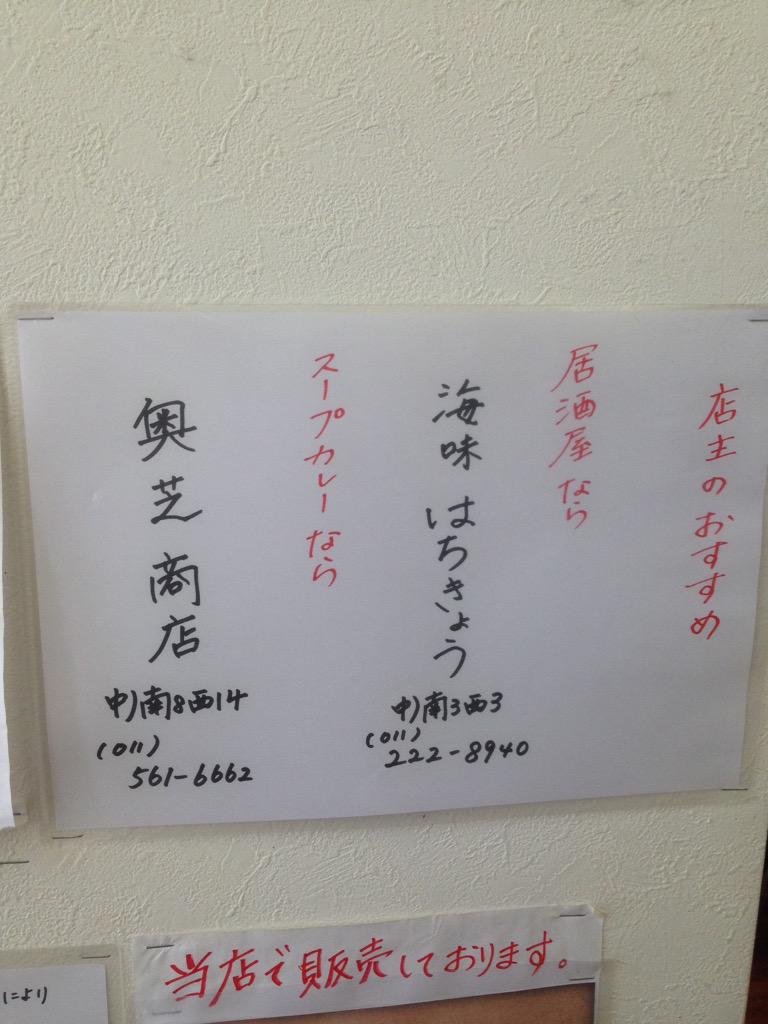 店主のおすすめ
居酒屋なら
海味 はちきょう
中)南3西3
(011)
222-8940
スープカレーなら
奥芝商店
中)南8西14
(011)
561-6662
当店で販売しております。
により